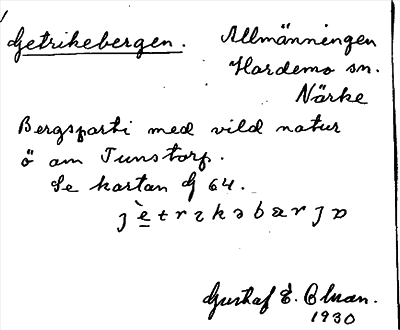 Getrikebergen.
Allmänningen
Hardemo sn.
Närke
Bergsparti med vild natur
ö om Tunstorp.
Se kartan G 64.
Gustaf E.
1930